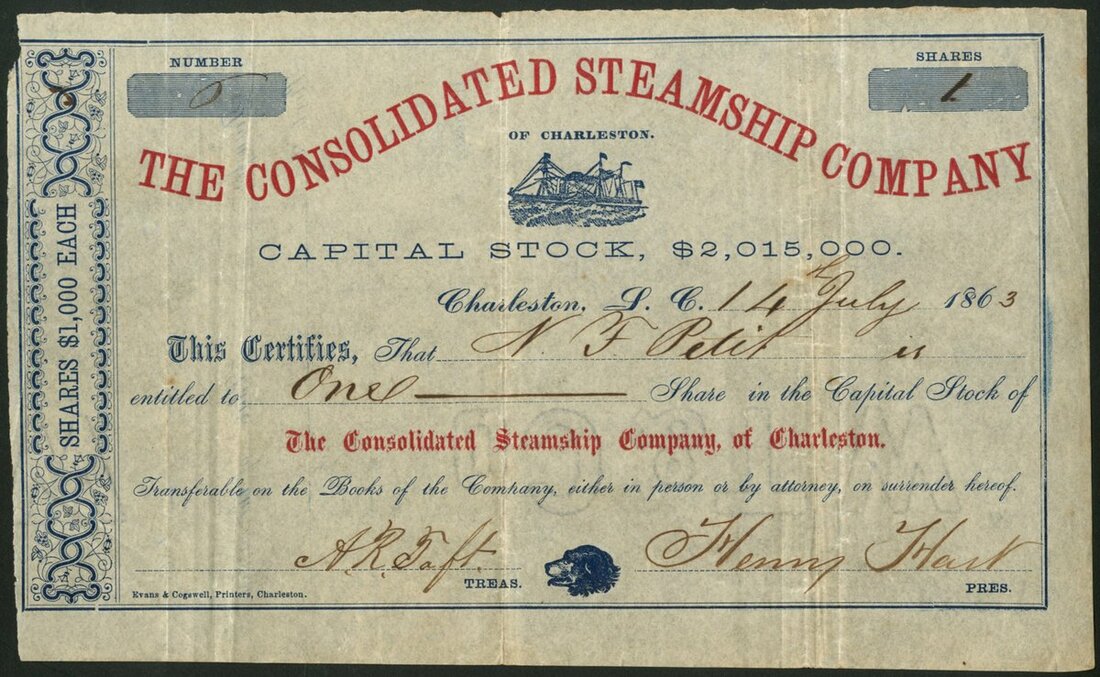 NUMBER
SHARES
1
THE CONSOLIDATED STEAMSHIP COMPANY
OF CHARLESTON.
CAPITAL STOCK, $2,015,000.
Charleston, S. C. 14 July 1863
This Certifies, That N. F. Petit is
entitled to One Share in the Capital Stock of
The Consolidated Steamship Company, of Charleston.
Transferable on the Books of the Company, either in person or by attorney, on surrender hereof.
A. R. Taft. TREAS.
Henry Hart PRES.
Evans & Cogswell, Printers, Charleston.
SHARES $1,000 EACH